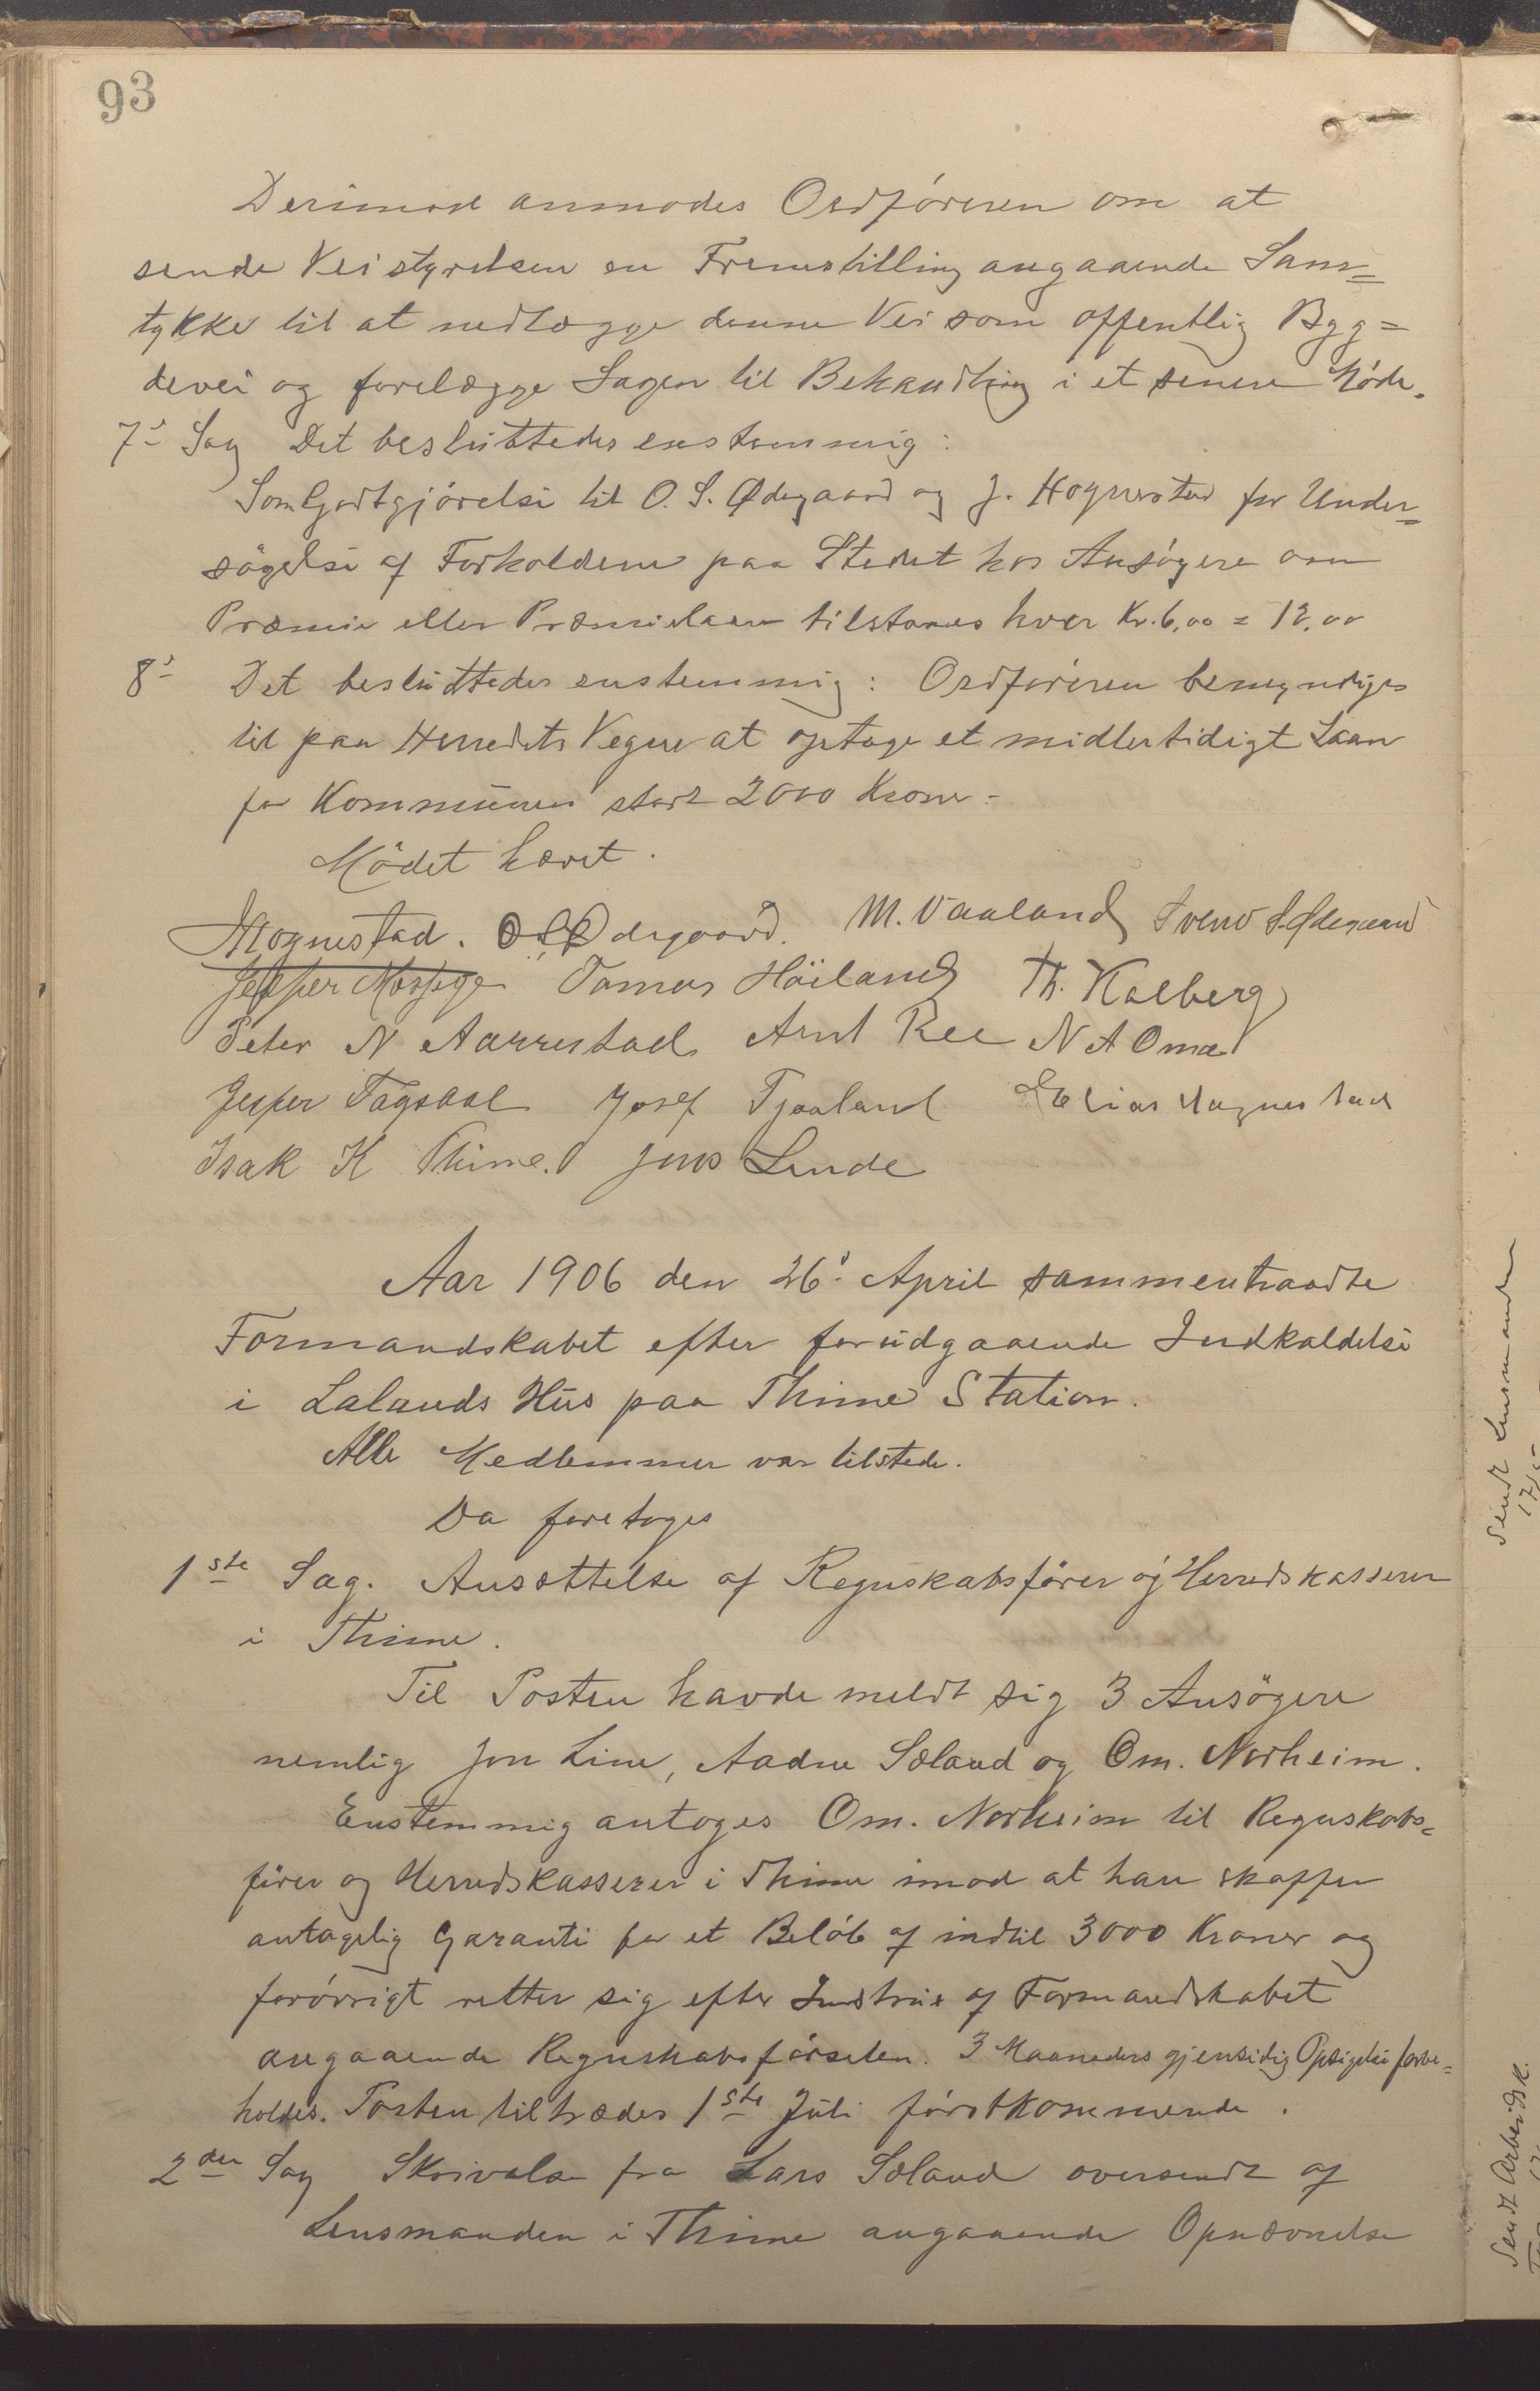 93
Derimod anmodes Ordföreren om at
sende Veistyrelsen en Fremstilling angaaende Sam=
tykke til at nedlægge denne Vei som offentlig Byg=
devei og forelægge Sagen til Behandling i et senere Möde.
7d Sag Det besluttedes enstemmig:
Som Godtgjörelse til O. S. Ødegaard og J. Hognestad for Under=
sögelse af Forholdene paa Stedet hos Ansögere om
Præmie eller Præmielaan tilstaaes hver Kr. 6,00 = 12,00
8d Det besluttedes enstemmig: Ordföreren bemyndiges
til paa Herredets Vegne at optage et midlertidigt Laan
for Kommunen stort 2000 Kroner.
Mödet hævet.
JHognestad. O S Ødegaard. M. Vaaland Svend S. Ødegaard
Jesper Mossige Tomas Höiland Th. Kalberg
Peter N Aarrestad Arnt Ree N A Oma
Jesper Fagstad Josef Tjaaland Elias Hognestad
Isak K Thime. Jens Linde
Aar 1906 den 26d April sammentraadte
Formandskabet efter forudgaaende Indkaldelse
i Lalands Hus paa Thime Station.
Alle Medlemmer var tilstede.
Da foretoges
1ste Sag. Ansættelse af Regnskabsförer og Herredskasserer
i Thime.
Til Posten havde meldt sig 3 Ansögere
nemlig Jon Line, Aadne Sæland og Om. Norheim.
Enstemmig antoges Om. Norheim til Regnskabs=
förer og Herredskasserer i Thime imod at han skaffer
antagelig Garanti for et Belöb af indtil 3000 Kroner og
forövrigt retter sig efter Instrux af Formandskabet
angaaende Regnskabsförselen. 3 Maaneders gjensidig Opsigelse forbe=
holdes. Posten tiltrædes 1ste Juli förstkommende.
2den Sag Skrivelse fra Lars Sæland oversendt af
Lensmanden i Thime angaaende Opnævnelse
Sendt Lensmanden
17/5
Sendt Arbeidsk.